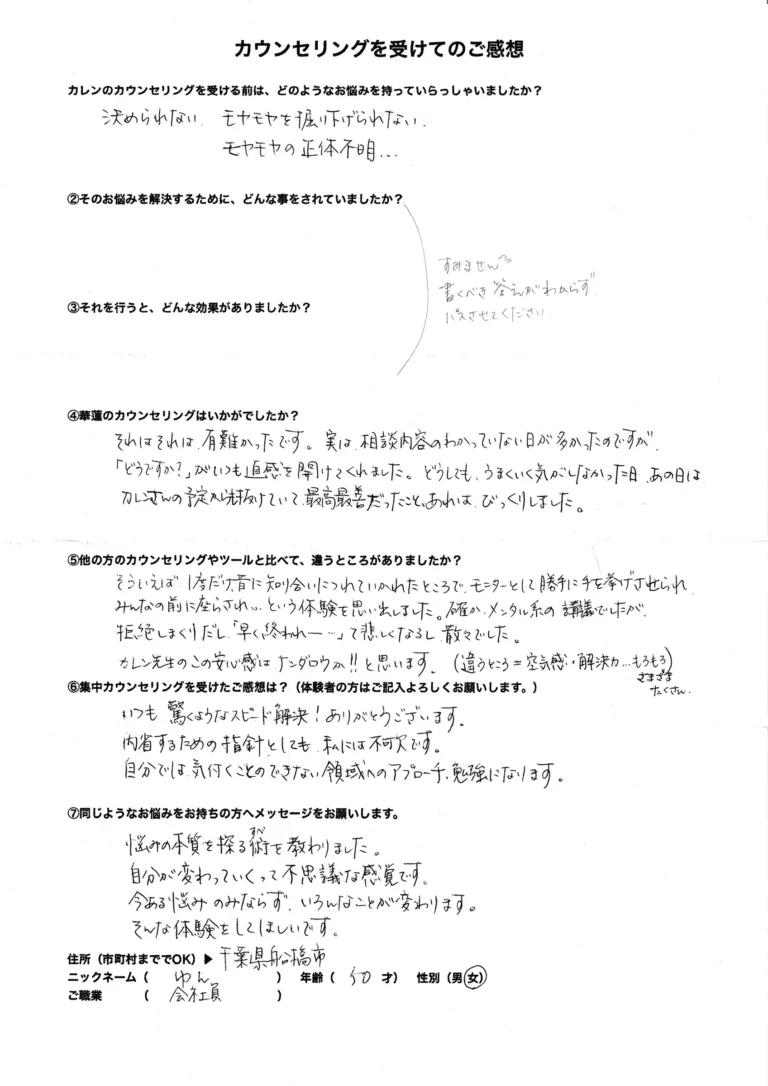 カウンセリングを受けてのご感想
カレンのカウンセリングを受ける前は、どのようなお悩みを持っていらっしゃいましたか？
決められない、モヤモヤを掘り下げられない、
モヤモヤの正体不明...
②そのお悩みを解決するために、どんな事をされていましたか？
すみません
書くべき答えがわからず
パスさせてください
③それを行うと、どんな効果がありましたか？
④華蓮のカウンセリングはいかがでしたか？
それはそれは、有難かったです。実は、相談内容のわかっていない日が多かったのですが、
「どうですか？」がいつも直感を開けてくれました。どうしても、うまくいく気がしなかった日、あの日は
カレンさんの予定から抜けていて、最高最善だったこと、あれは、びっくりしました。
⑤他の方のカウンセリングやツールと比べて、違うところがありましたか？
そういえば、1度だけ昔に知り合いにつれていかれたところで、モニターとして勝手に手を挙げさせられ、
みんなの前に座らされ...という体験を思い出しました。確か、メンタル系の講義でしたが、
拒絶しまくりだし、「早く、終われー...」て悲しくなるし、散々でした。
カレン先生のこの安心感はナンダロウか!!と思います。（違うところ＝空気感・解決力...もろもろ）
さまざま
たくさん。
⑥集中カウンセリングを受けたご感想は？（体験者の方はご記入よろしくお願いします。）
いつも驚くようなスピード解決！ありがとうございます。
内省するための指針としても、私には不可欠です。
自分では、気付くことのできない領域へのアプローチ、勉強になります。
⑦同じようなお悩みをお持ちの方へメッセージをお願いします。
悩みの本質を探る術（すべ）を教わりました。
自分が変わっていくって不思議な感覚です。
今ある悩みのみならず、いろんなことが変わります。
そんな体験をしてほしいです。
住所（市町村まででOK）▶千葉県船橋市
ニックネーム（ ゆん ） 年齢（ 50 才） 性別（男 女）
ご職業 （ 会社員 ）